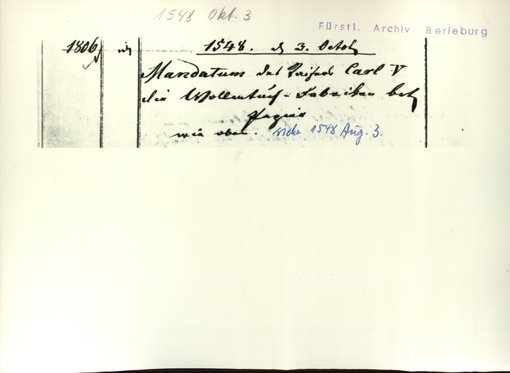 1548 Okt. 3
Fürstl. Archiv Berleburg
1806 1548. d 3. Octob
Mandatum des Kaisers Carl V
die Wollentuch-Fabriken betr
Papier
wie oben. siehe 1548 Aug. 3.